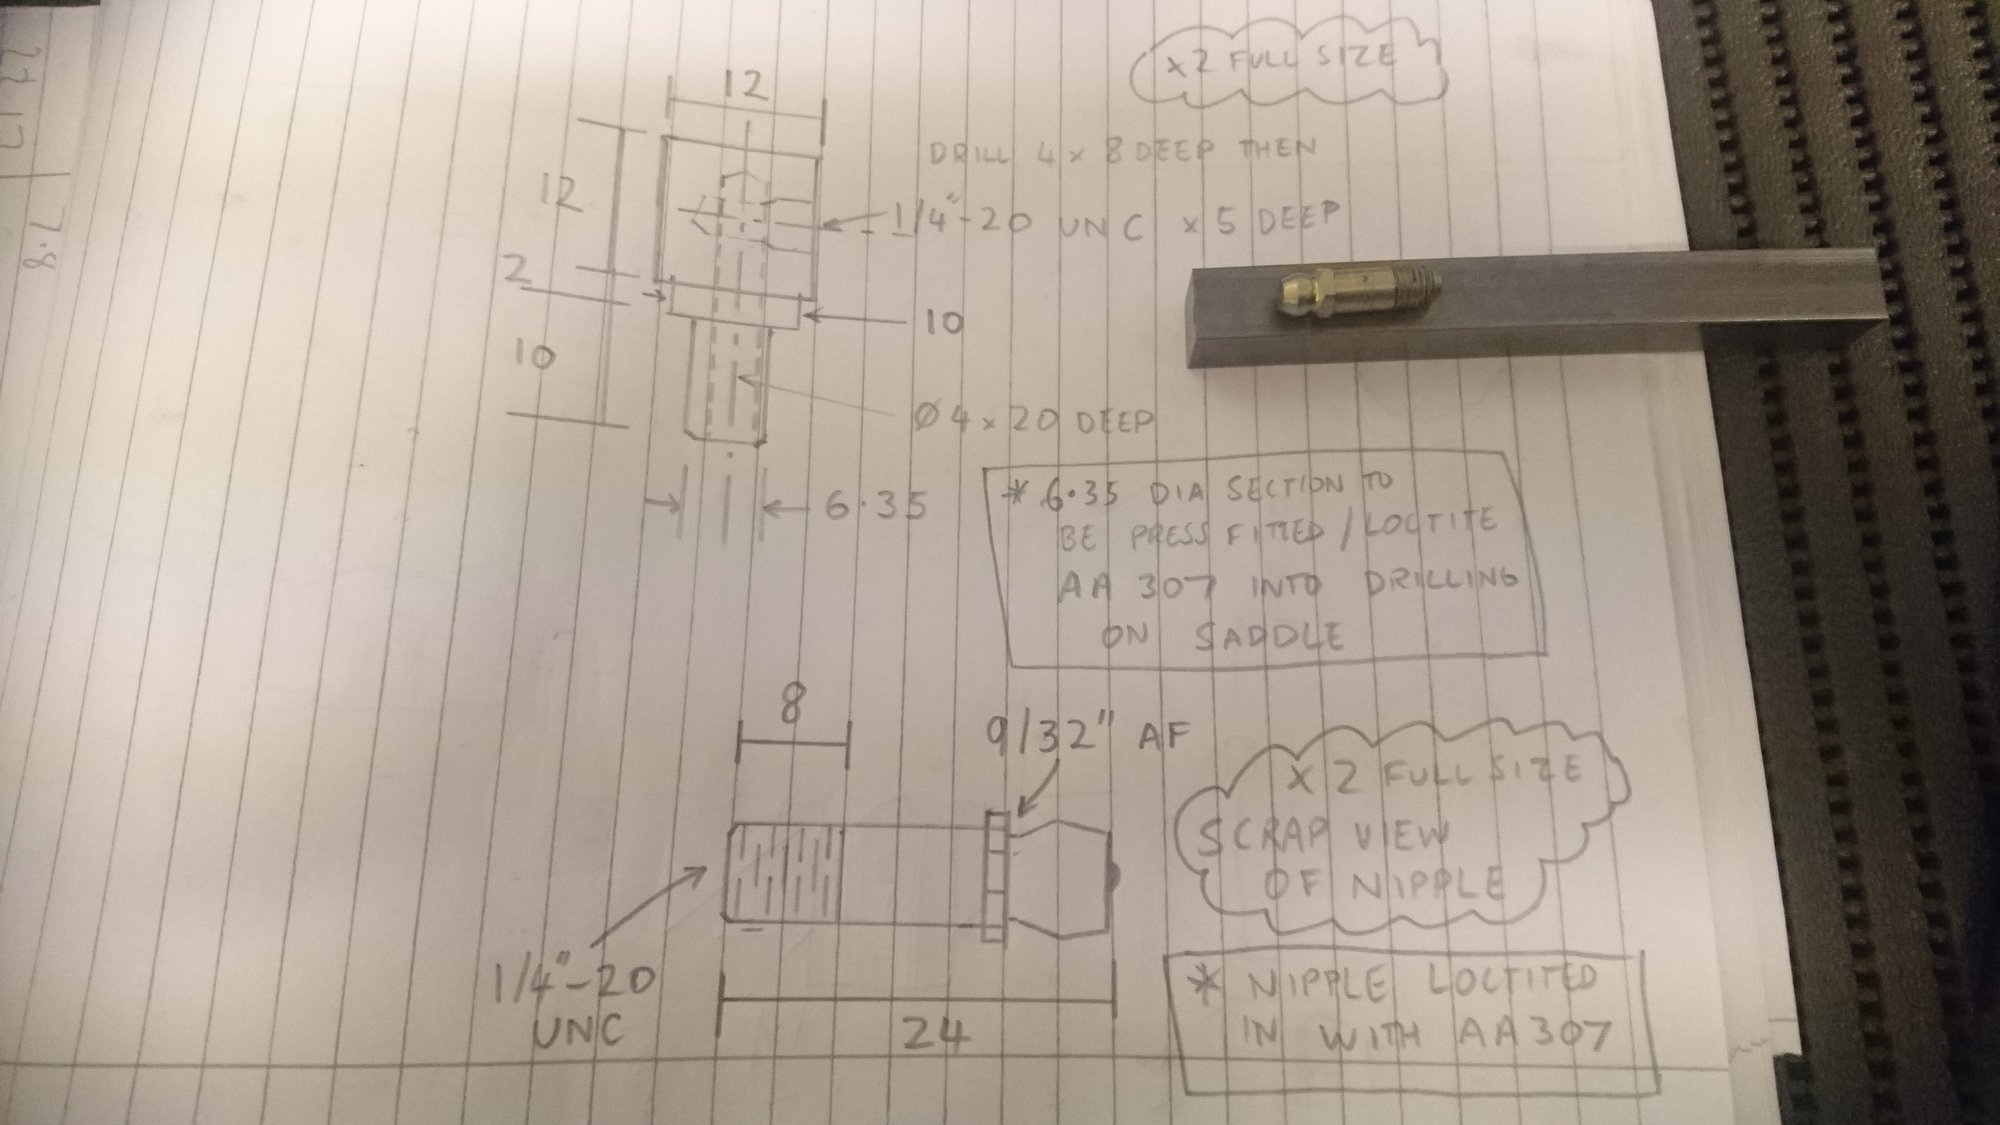 X2 FULL SIZE
12
DRILL 4 x 8 DEEP THEN
12
1/4"-20 UNC x 5 DEEP
2
10
10
Ø4 x 20 DEEP
6.35
* 6.35 DIA SECTION TO
BE PRESS FITTED / LOCTITE
AA 307 INTO DRILLING
ON SADDLE
8
9/32" AF
X 2 FULL SIZE
SCRAP VIEW
OF NIPPLE
1/4"-20
UNC
24
* NIPPLE LOCTITED
IN WITH AA307